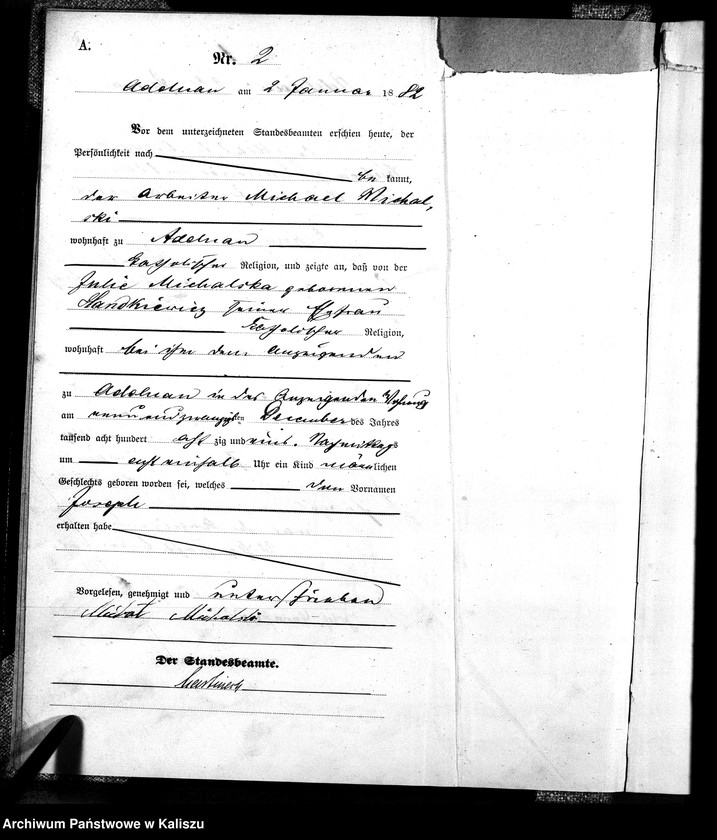 A.
Nr. 2
Adelnau am 2 Januar 1882
Vor dem unterzeichneten Standesbeamten erschien heute, der
Persönlichkeit nach
be kannt,
der Arbeiter Michael Michal,
ski
wohnhaft zu Adelnau
katholischer Religion, und zeigte an, daß von der
Julie Michalska geborenen
seiner Ehefrau
katholischer Religion,
wohnhaft bei ihm dem Anzeigenden
zu Adelnau in des Anzeigenden Wohnung
am neunundzwanzigsten December des Jahres
tausend acht hundert acht zig und eins, Nachmittags
um acht einhalb Uhr ein Kind männlichen
Geschlechts geboren worden sei, welches den Vornamen
Joseph
erhalten habe
Vorgelesen, genehmigt und unterschrieben
Michał Michalski
Der Standesbeamte.
Archiwum Państwowe w Kaliszu